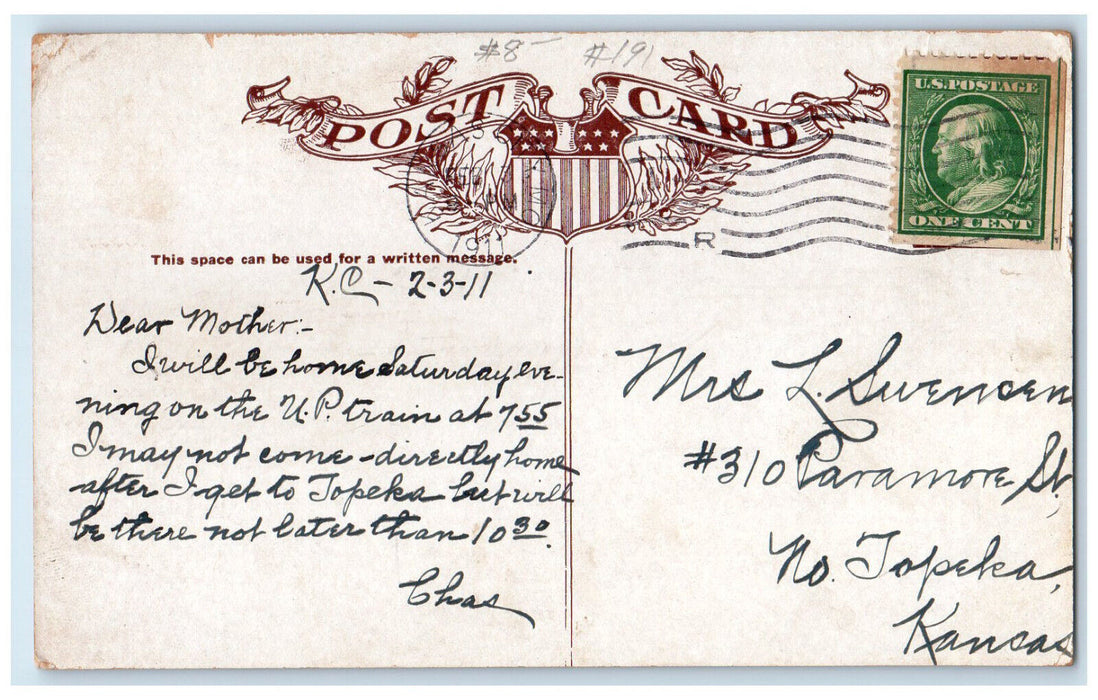 #8- #191
POST CARD
U.S. POSTAGE
ONE CENT
1911
R
This space can be used for a written message.
K.C - 2-3-11
Dear Mother:-
I will be home Saturday eve-
ning on the U.P. train at 755
I may not come - directly home
after I get to Topeka but will
be there not later than 1030.
Chas
Mrs L. Swensen
#310 Paramore St,
No. Topeka,
Kansas